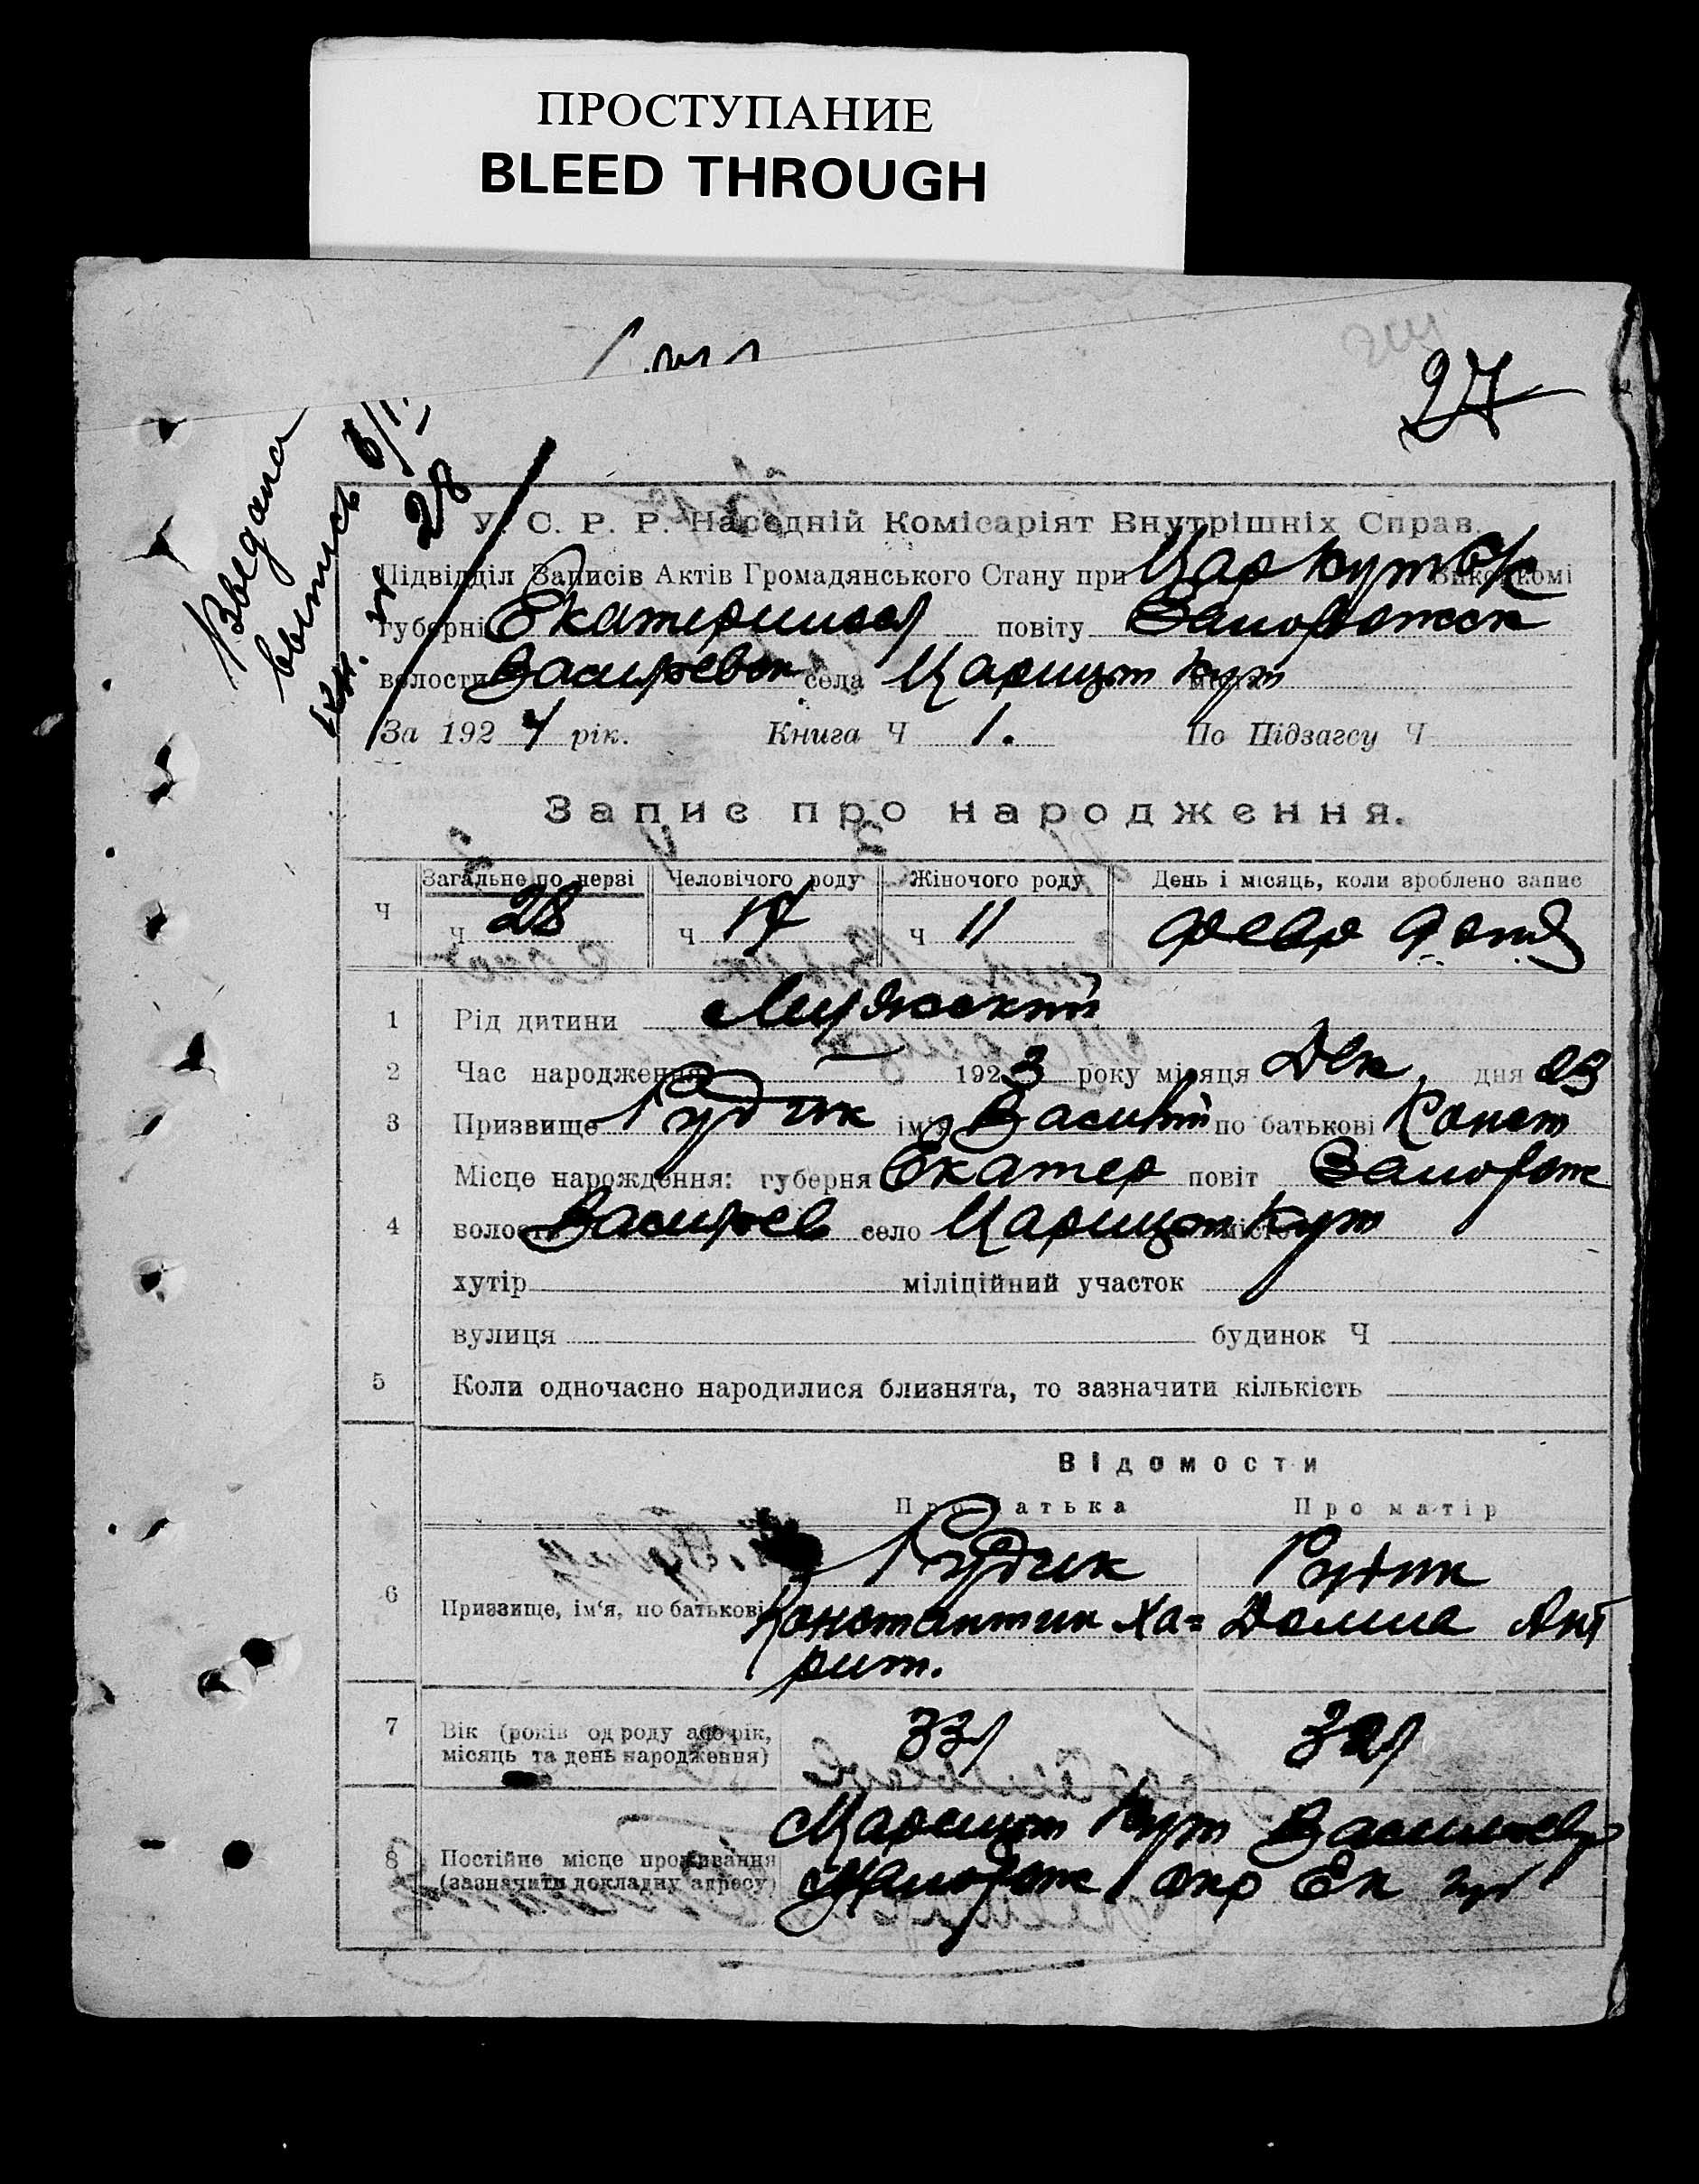 ПРОСТУПАНИЕ
BLEED THROUGH
27
28
У. С. Р. Р. Народній Комісаріят Внутрішніх Справ.
Підвідділ Записів Актів Громадянського Стану при Цар Кутск Виконкомі
губерні Екатеринос повіту Запорожск
волости Васильевск села Царицын Кут
За 1924 рік. Книга Ч 1. По Підзагсу Ч
Запис про народження.
Загальне по черзі Человічого роду Жіночого роду День і місяць, коли зроблено запис
Ч Ч 28 Ч 17 Ч 11 Февр
1 Рід дитини Мужский
2 Час народження 1923 року місяця Дек. дня 23
3 Призвище Рудик ім'я Василий по батькові Конст
Місце нарождення: губерня Екатер повіт Запорож
4 волость Васильев село Царицын Кут
хутір міліційний участок
вулиця будинок Ч
5 Коли одночасно народилися близнята, то зазначити кількість
Відомости
Про батька Про матір
Рудик Рудик
6 Призвище, ім'я, по батькові Константин Ха= Домна Ант
рит.
7 Вік (років од роду або рік, 33 32
місяць та день народження)
Царицын Кут Васильев
8 Постійне місце проживання
(зазначити докладну адресу) Запорож окр Ек губ